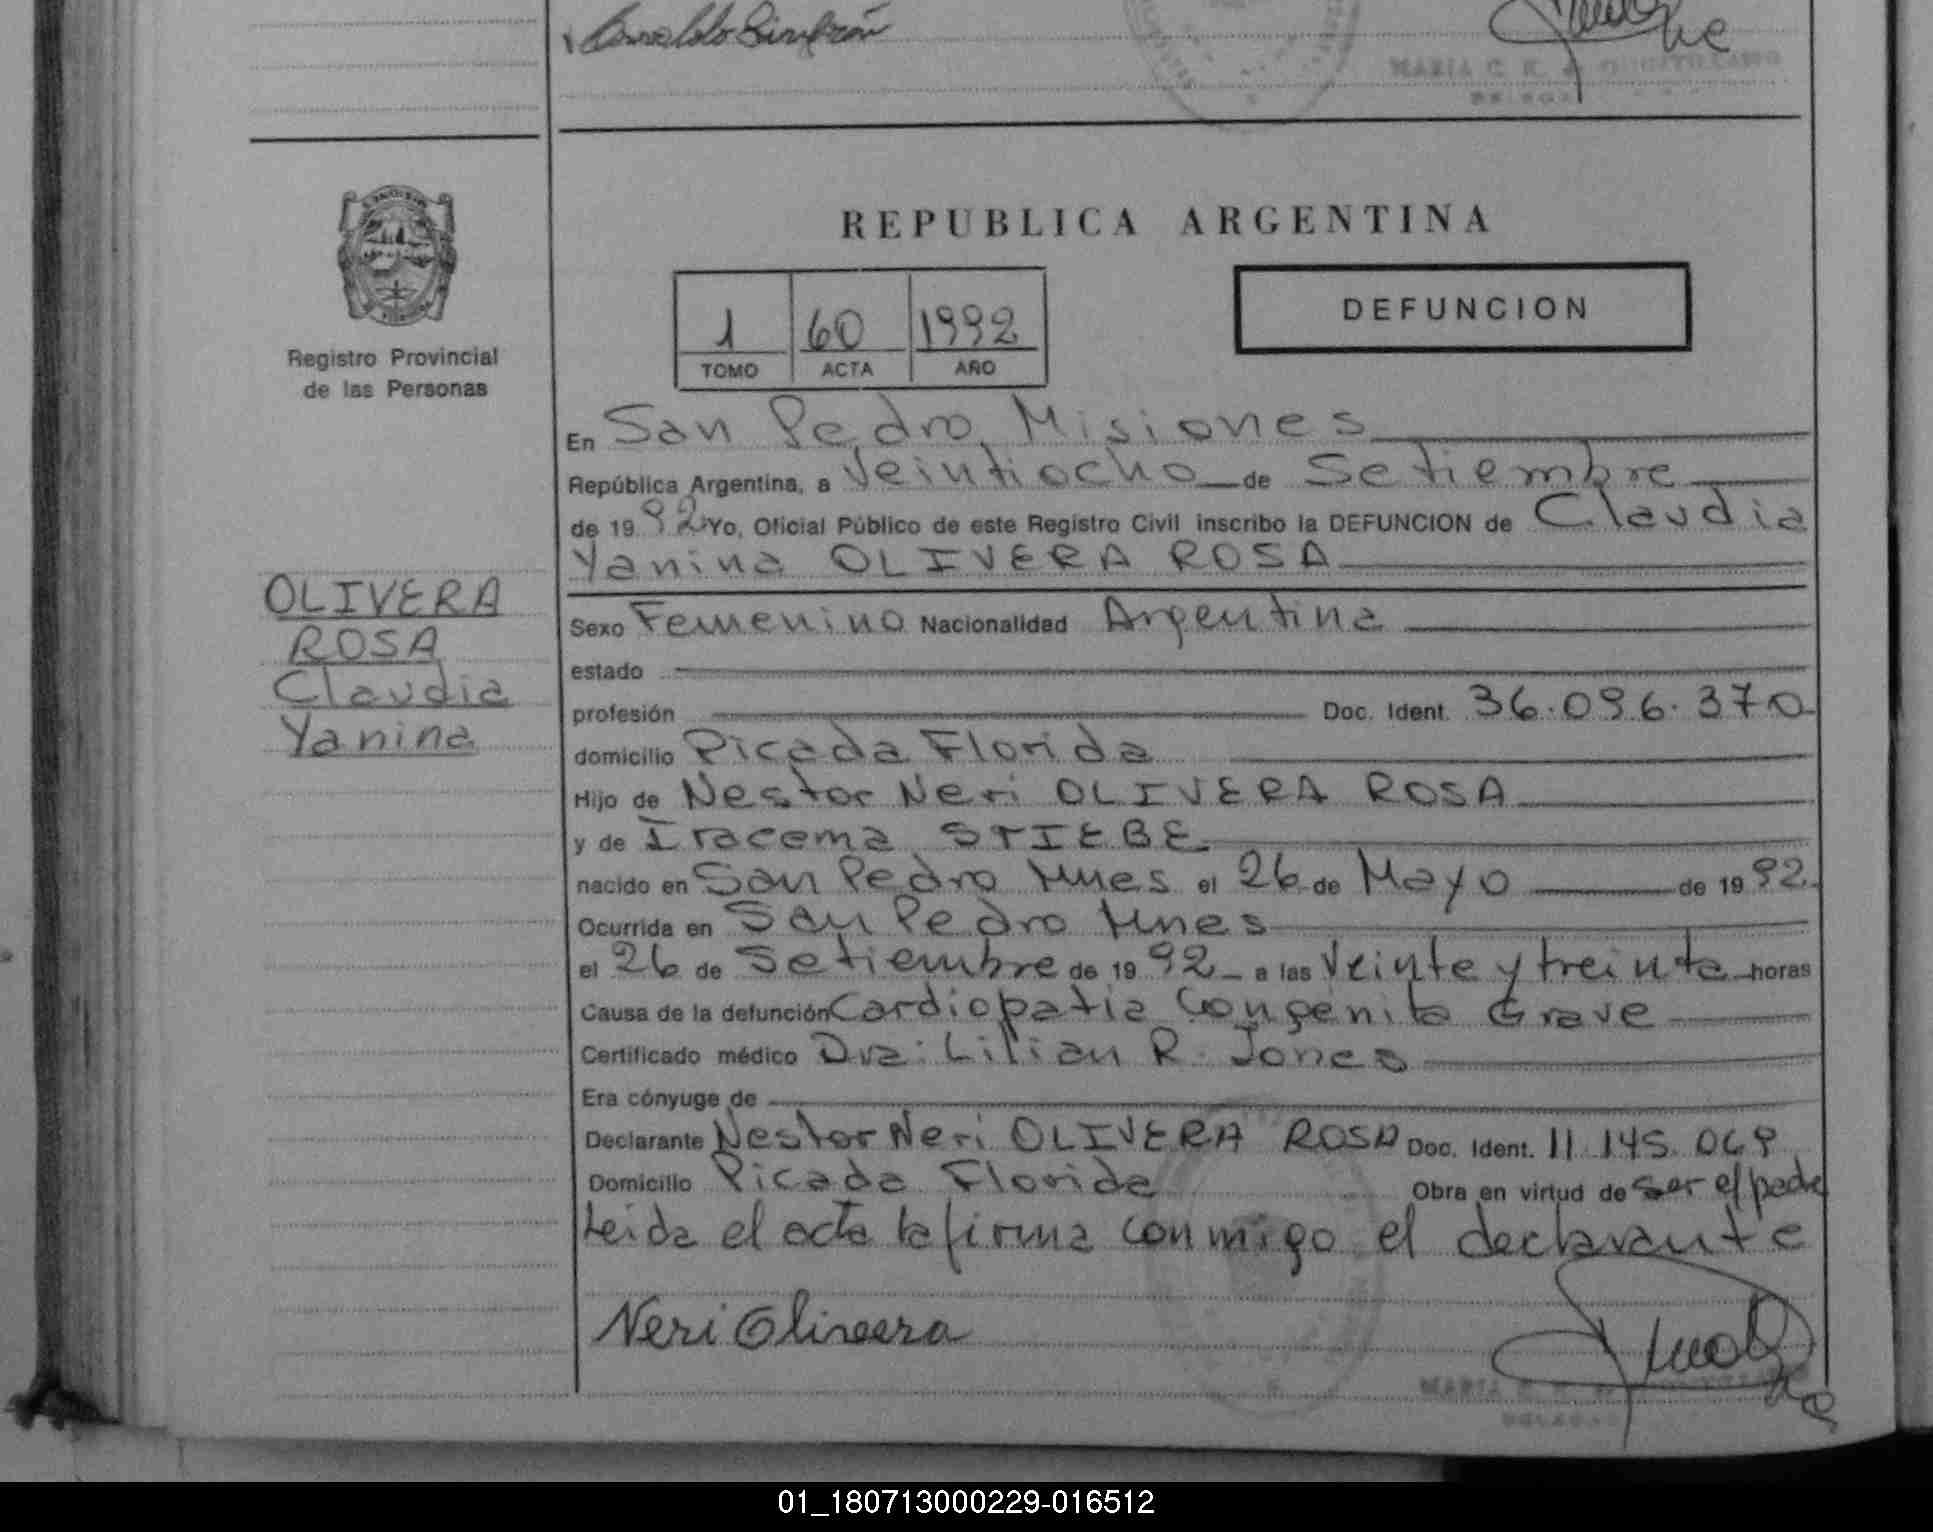 Osvaldo
MARIA C. K. de
REPUBLICA ARGENTINA
1 60 1992
TOMO ACTA AÑO
DEFUNCION
Registro Provincial
de las Personas
En San Pedro, Misiones
República Argentina, a Veintiocho de Setiembre
de 1992 Yo, Oficial Público de este Registro Civil inscribo la DEFUNCION de Claudia
Yanina OLIVERA ROSA
OLIVERA
ROSA
Claudia
Yanina
Sexo Femenino Nacionalidad Argentina
estado
profesión Doc. Ident. 36.096.370
domicilio Picada Florida
Hijo de Nestor Neri OLIVERA ROSA
y de Iracema STIEBE
nacido en San Pedro Mnes el 26 de Mayo de 1992
Ocurrida en San Pedro Mnes
el 26 de Setiembre de 1992 a las Veinte y treinta horas
Causa de la defunción Cardiopatia Congenita Grave
Certificado médico Dra. Lilian R. Jones
Era cónyuge de
Declarante Nestor Neri OLIVERA ROSA Doc. Ident. 11.145.069
Domicilio Picada Florida Obra en virtud de ser el padre
Leida el acta la firma conmigo el declarante
Neri Oliveera
MARIA
01_180713000229-016512